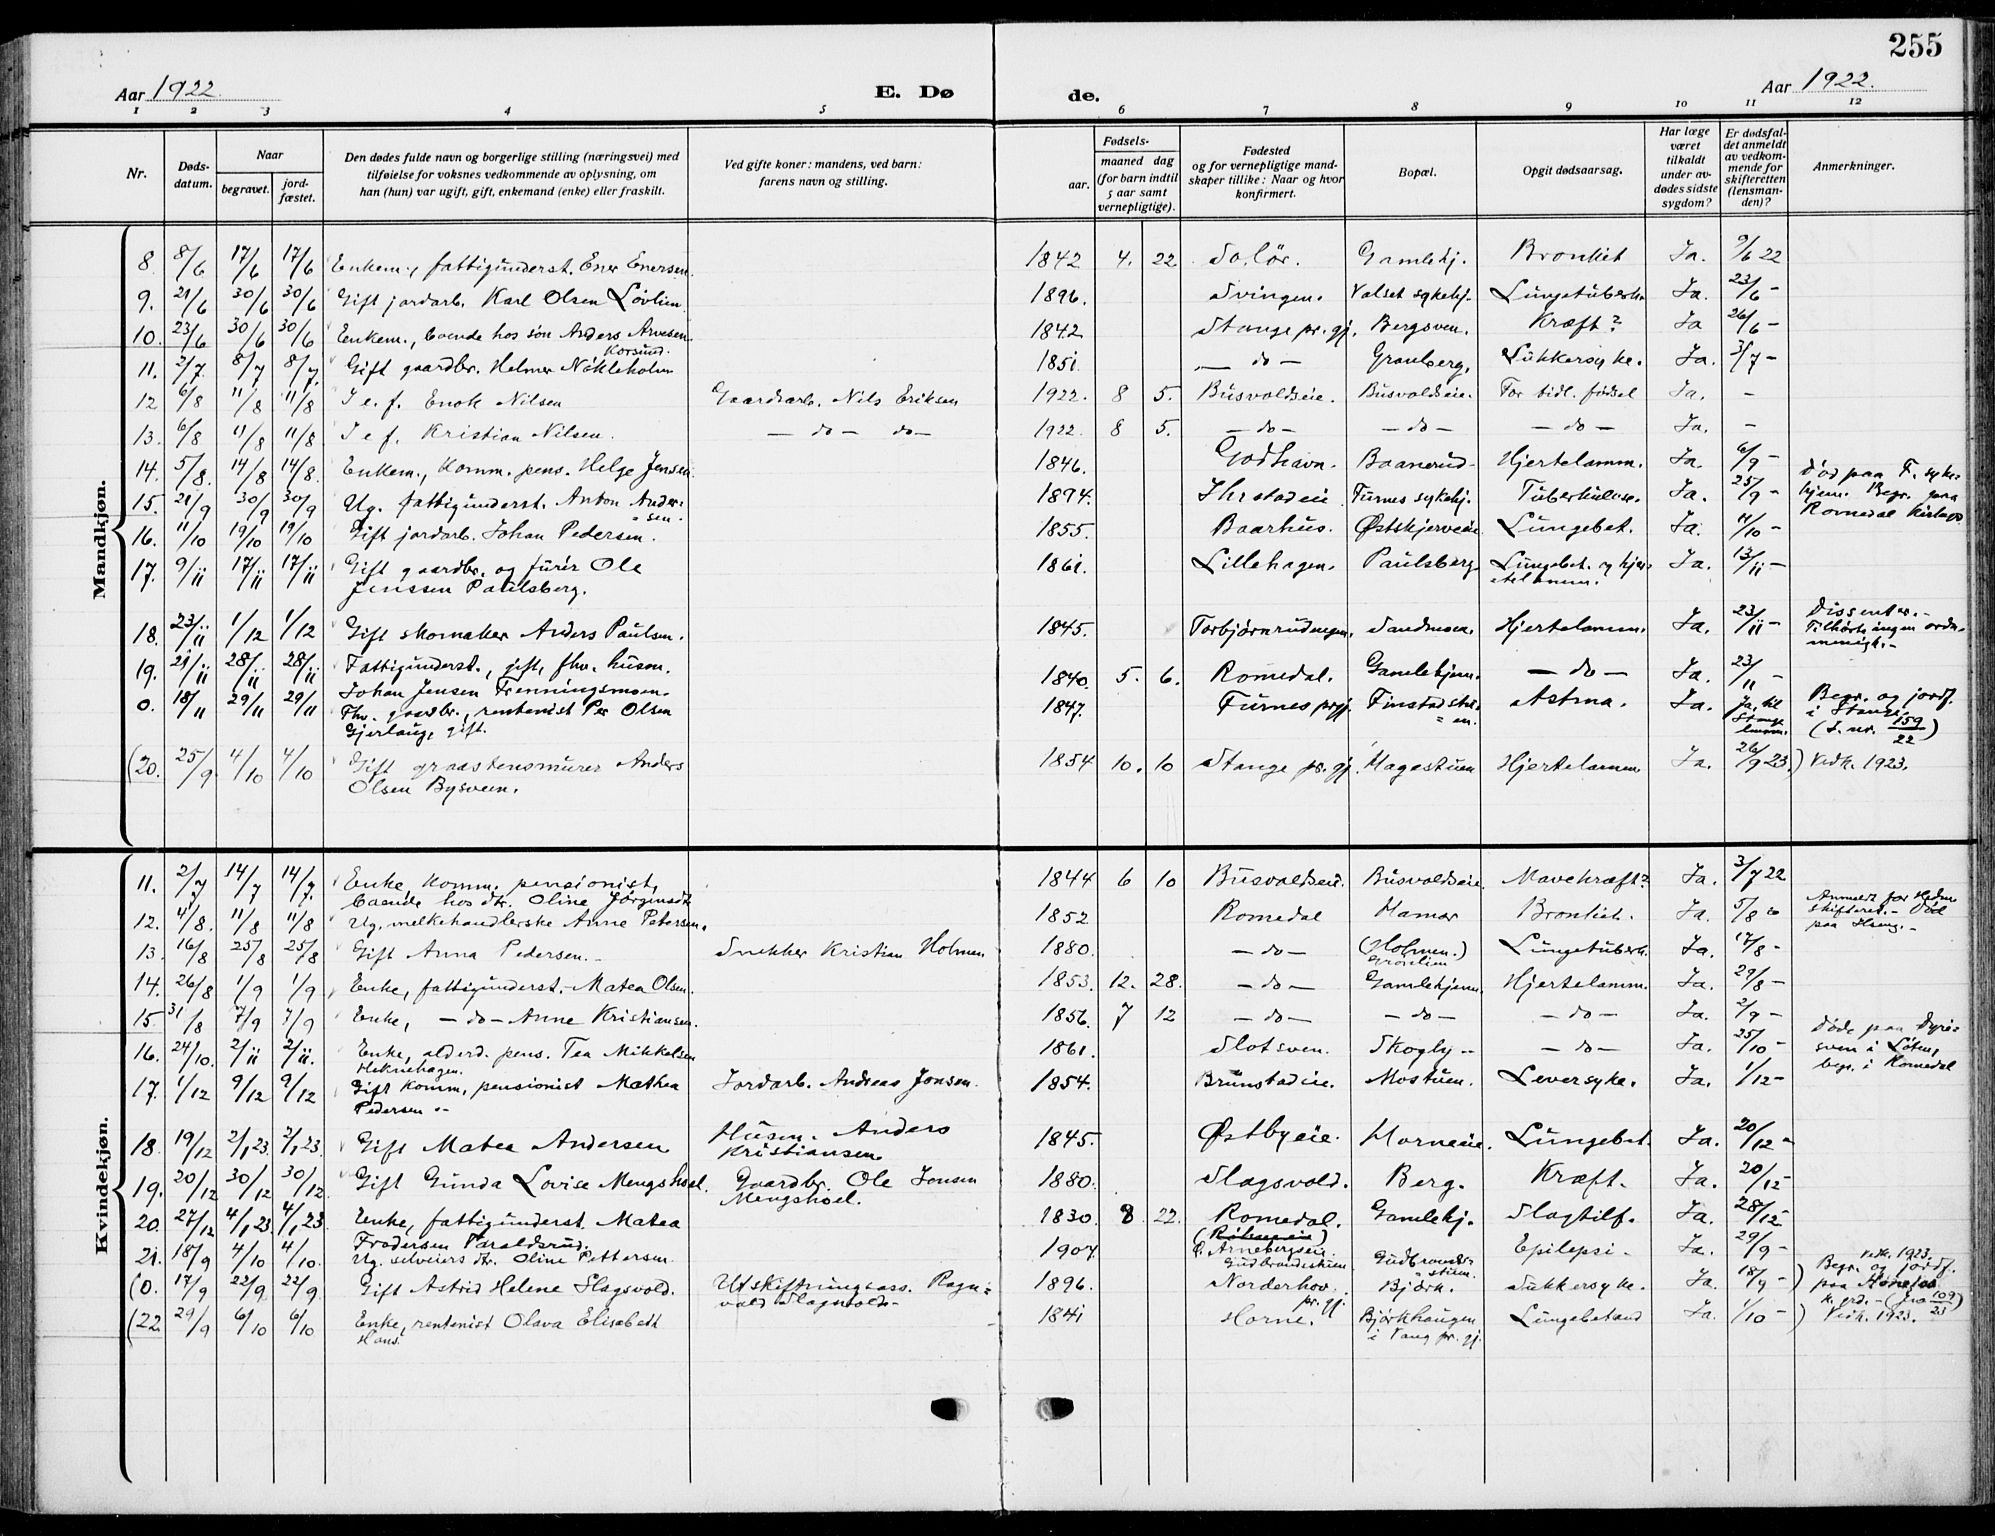 255
Aar 1922. E. Dø de. Aar 1922.
1 2 3 4 5 6 7 8 9 10 11 12
Nr.
Døds-
datum.
Naar
begravet.
jord-
fæstet.
Den dødes fulde navn og borgerlige stilling (næringsvei) med
tilføielse for voksnes vedkommende av oplysning, om
han (hun) var ugift, gift, enkemand (enke) eller fraskilt.
Ved gifte koner: mandens, ved barn:
farens navn og stilling.
Fødsels-
aar.
maaned dag
(for barn indtil
5 aar samt
vernepligtige).
Fødested
og for vernepligtige mand-
skaper tillike: Naar og hvor
konfirmert.
Bopæl.
Opgit dødsaarsag.
Har læge
været
tilkaldt
under av-
dødes sidste
sygdom?
Er dødsfal-
det anmeldt
av vedkom-
mende for
skifteretten
(lensman-
den)?
Anmerkninger.
Mandkjøn.
8. 8/6 17/6 17/6 Enkem., fattigunderst. Ener Enersen. 1842 4. 22 Solør. Gamlehj. Bronkit Ja. 9/6 22
9. 21/6 30/6 30/6 Gift jordarb. Karl Olsen Løvlien 1896. Svingen. Valset sykehj. Lungetuberk. Ja. 23/6 -
10. 23/6 30/6 30/6 Enkem., boende hos søn Anders Arvesen Korsund. 1842 Stange pr.gj. Bergsven. Kræft? Ja 26/6 -
11. 2/7 8/7 8/7 Gift gaardbr. Helmer Nökleholm 1851. - do - Granberg. Sukkersyke. Ja. 3/7 -
12 6/8 11/8 11/8 I e. f. Enok Nilsen Gaardsarb. Nils Eriksen 1922. 8 5. Busvoldseie. Busvoldseie. For tidl. fødsel Ja. -
13. 6/8 11/8 11/8 I e f. Kristian Nilsen. - do - do - 1922 8 5. - do - - do - - do - Ja. -
14. 5/8. 14/8 14/8. Enkem., Komm. pens. Helge Jensen 1846. Godhavn. Baanerud. Hjertelamm. Ja. 6/9 -
15. 21/9 30/9 30/9 Ug. fattigunderst. Anton Ander-
sen. 1894. Ihrstadeie Furnes sykehj. Tuberkulose. Ja. 25/9 - Död paa F. syke-
hjem. Begr. paa
Romedal kirkegd
16. 11/10 19/10 19/10 Gift jordarb. Johan Pedersen. 1855. Baarhus. Østskjerveie Lungebet. Ja. 11/10 -
17. 9/11 17/11 17/11 Gift gaardbr. og furér Ole
Jenssen Paulsberg. 1861. Lillehagen. Paulsberg. Lungebet. og hjer-
telamm. Ja. 13/11 -
18. 23/11 1/12 1/12 Gift skomaker Anders Paulsen. 1845. Torbjørnrudengen. Sandmoen. Hjertelamm. Ja. 23/11 - Dissenter. -
Tilhørte ingen ordn.
menigh. -
19. 21/11 28/11 28/11 Fattigunderst., gift, fhv. husm.
Johan Jensen Frenningsmoen. 1840. 5. 6. Romedal. Gamlehjem. - do - Ja. 23/11 -
0. 18/11 29/11 29/11 Fhv. gaardbr., rentenist Per Olsen
Gjerlaug, gift. 1847. Furnes prgj. Finstadstu-
en. Astma. Ja. Ja, til
Stange
lensm. Begr. og jordf.
i Stange.
(J. nr. 159/22)
(20. 25/9 4/10 4/10 Gift graastensmurer Anders
Olsen Bysveen. 1854 10. 10 Stange pr. gj. Hagestuen Hjertelamm. Ja. 26/9 23.) Vedk. 1923.
Kvindekjøn.
11. 2/7 14/7 14/7. Enke, Komm. pensionist,
boende hos dtr. Oline Jörgensdt. 1844 6 10 Busvoldseie. Busvoldseie. Mavekræft? Ja. 3/7 22
12. 4/8. 11/8 11/8 Ug. melkehandlerske Anne Petersen. 1852 Romedal Hamar Bronkit. Ja. 5/8 Anmeldt for Hedm.
skifteret. - Död
paa Hseng. -
13. 16/8 25/8 25/8 Gift Anna Pedersen. - Snekker Kristian Holmen 1880. - do - (Holmen.)
Grönlien Lungetuberk. Ja. 17/8 -
14. 26/8 1/9 1/9 Enke, fattigunderst. - Matea Olsen. 1853. 12. 28. - do - Gamlehjem. Hjertelamm. Ja. 29/8 -
15. 31/8 7/9 7/9 Enke, - do - Anne Kristiansen. 1856. 7 12 - do - - do - - do - Ja. 2/9 -
16. 24/10. 2/11 2/11. Enke, alderd. pens. Tea Mikkelsen
Heknehagen. 1861. Slotsven. Skogly - - do - Ja. 25/10 - Döde paa Dyre-
sven i Løten,
begr. i Romedal
17. 1/12 9/12 9/12 Gift Komm. pensionist Mathea
Pedersen. - Jordarb. Andreas Jonsen. 1854. Brunstadeie. Mostuen. Leversyke. Ja. 1/12 -
18. 19/12 2/1 23. 2/1 23. Gift Matea Andersen Husm. Anders
Kristiansen 1845. Østbyeie. Horneeie. Lungebet. Ja. 20/12 -
19. 20/12 30/12 30/12. Gift Gunda Lovise Mengshoel. Gaardbr. Ole Jonsen
Mengshoel. 1880. Slagsvold. Berg. Kræft. Ja. 20/12 -
20. 27/12 4/1 23. 4/1 23 Enke, fattigunderst. Matea
Fredersen Taraldsrud. 1830. 8 22. Romedal. Gamlehj. Slagtilf. Ja. 28/12 -
21. 18/9 4/10 4/10. Ug. selveiers dtr. Oline Pettersen 1907. Arnebergseie.
Gudbrandsstuen Gudbrands-
stuen. Epilepsi - Ja. 29/9 - Vedk. 1923.
(0. 17/9 22/9 22/9 Gift Astrid Helene Slagsvold. Utskiftningsass. Ragn-
vald Slagsvold - 1896. Norderhov.
pr. gj. Björk. Sukkersyke. Ja. 18/9 -) Begr. og jordf.
paa Hönefos
k.grd. - (J.no 109/23)
(22 29/9 6/10 6/10 Enke, rentenist Olava Elisabeth
Hans. 1841 Horne. Bjørkhaugen
i Vang pr. gj. Lungebetænd Ja. 1/10 -) Vedk. 1923.